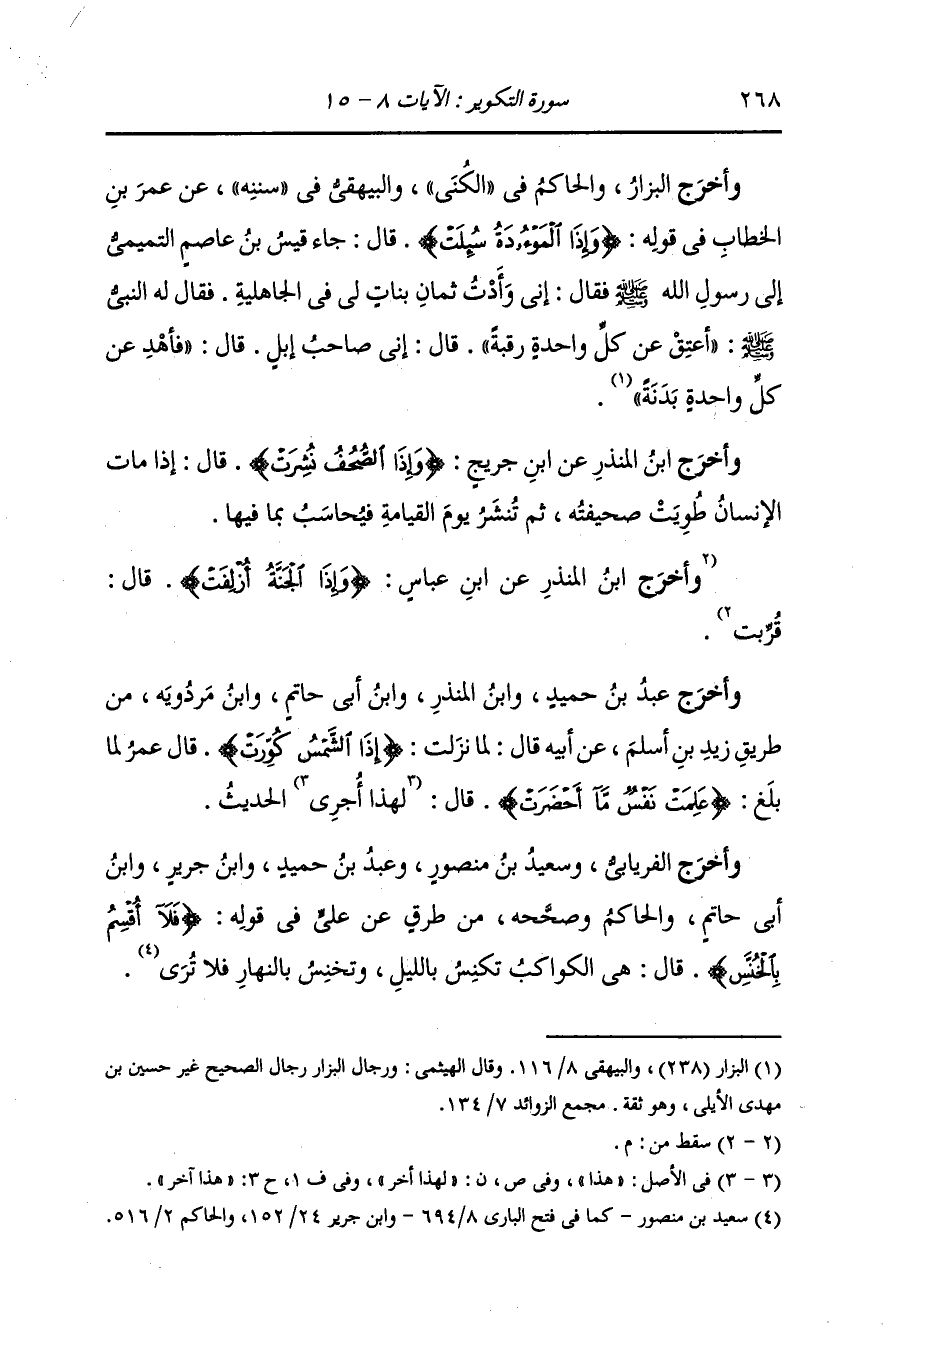 ٢٦٨ سورة التكوير : الآيات ٨ - ١٥
وأخرَج البزارُ ، والحاكمُ فى «الكُنَى» ، والبيهقىُّ فى «سننِه» ، عن عمرَ بنِ
الخطابِ فى قولِه : ﴿وَإِذَا ٱلْمَوْءُۥدَةُ سُئِلَتْ﴾ . قال : جاء قيسُ بنُ عاصمٍ التميمىُّ
إلى رسولِ الله ﷺ فقال : إنى وَأَدْتُ ثمانِ بناتٍ لى فى الجاهليةِ . فقال له النبىُّ
ﷺ : «أعتِقْ عن كلِّ واحدةٍ رقبةً» . قال : إنى صاحبُ إبلٍ . قال : «فأهْدِ عن
كلِّ واحدةٍ بَدَنَةً»(١) .
وأخرَج ابنُ المنذرِ عن ابنِ جريجٍ : ﴿وَإِذَا ٱلصُّحُفُ نُشِرَتْ﴾ . قال : إذا مات
الإنسانُ طُوِيَتْ صحيفتُه ، ثم تُنشَرُ يومَ القيامةِ فيُحاسَبُ بما فيها .
(٢وأخرَج ابنُ المنذرِ عن ابنِ عباسٍ : ﴿وَإِذَا ٱلْجَنَّةُ أُزْلِفَتْ﴾ . قال :
قُرِّبت٢) .
وأخرَج عبدُ بنُ حميدٍ ، وابنُ المنذرِ ، وابنُ أبى حاتمٍ ، وابنُ مَردُويَه ، من
طريقِ زيدِ بنِ أسلمَ ، عن أبيه قال : لما نزَلت : ﴿إِذَا ٱلشَّمْسُ كُوِّرَتْ﴾ . قال عمرُ لما
بلَغ : ﴿عَلِمَتْ نَفْسٌ مَّآ أَحْضَرَتْ﴾ . قال : (٣لهذا أُجرِى٣) الحديثُ .
وأخرَج الفريابىُّ ، وسعيدُ بنُ منصورٍ ، وعبدُ بنُ حميدٍ ، وابنُ جريرٍ ، وابنُ
أبى حاتمٍ ، والحاكمُ وصحَّحه ، من طرقٍ عن علىٍّ فى قولِه : ﴿فَلَآ أُقْسِمُ
بِٱلْخُنَّسِ﴾ . قال : هى الكواكبُ تكنِسُ بالليلِ ، وتخنِسُ بالنهارِ فلا تُرَى(٤) .
(١) البزار (٢٣٨) ، والبيهقى ٨/ ١١٦. وقال الهيثمى : ورجال البزار رجال الصحيح غير حسين بن
مهدى الأيلى ، وهو ثقة . مجمع الزوائد ٧/ ١٣٤.
(٢ - ٢) سقط من : م .
(٣ - ٣) فى الأصل : «هذا» ، وفى ص ، ن : «لهذا أخر» ، وفى ف ١، ح ٣: «هذا آخر» .
(٤) سعيد بن منصور - كما فى فتح البارى ٦٩٤/٨ - وابن جرير ٢٤/ ١٥٢، والحاكم ٢/ ٥١٦.